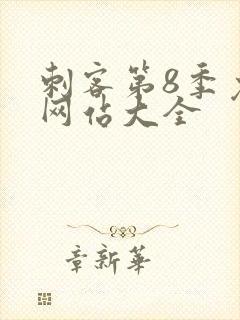 刺客第8季
网佔大全
章新華